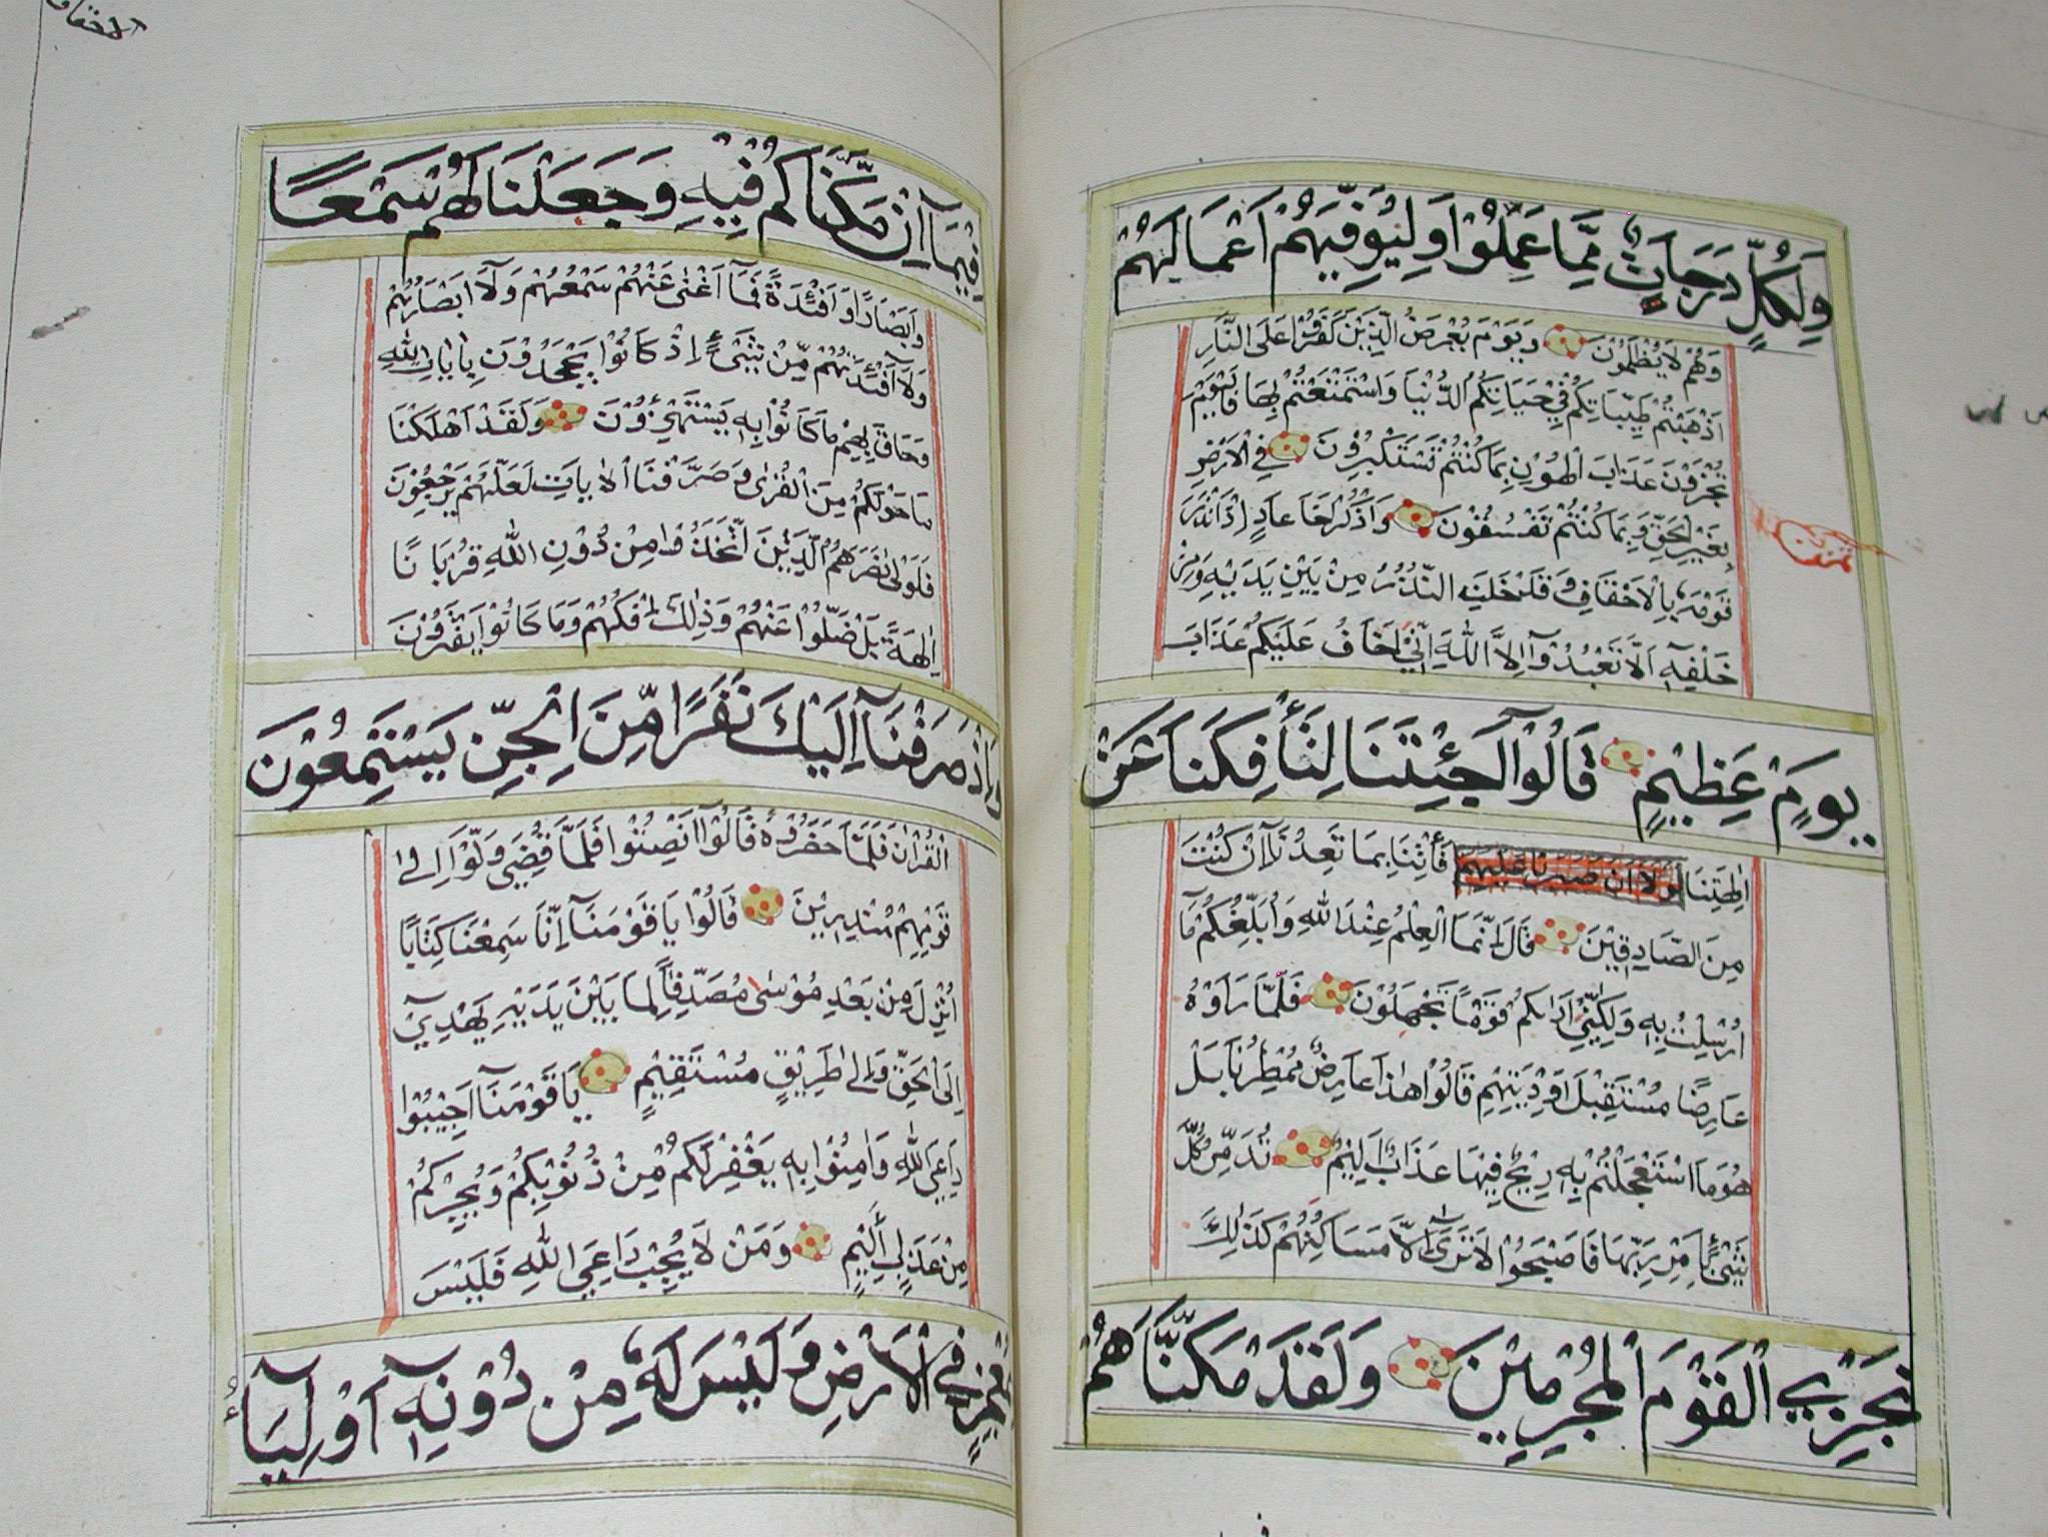 وَلِكُلٍّ دَرَجَاتٌ مِّمَّا عَمِلُوْا وَلِيُوَفِّيَهُمْ اَعْمَالَهُمْ
وَهُمْ لَا يُظْلَمُوْنَ وَيَوْمَ يُعْرَضُ الَّذِيْنَ كَفَرُوْا عَلَى النَّارِ
اَذْهَبْتُمْ طَيِّبَاتِكُمْ فِيْ حَيَاتِكُمُ الدُّنْيَا وَاسْتَمْتَعْتُمْ بِهَا فَالْيَوْمَ
تُجْزَوْنَ عَذَابَ الْهُوْنِ بِمَا كُنْتُمْ تَسْتَكْبِرُوْنَ فِي الْاَرْضِ
بِغَيْرِ الْحَقِّ وَبِمَا كُنْتُمْ تَفْسُقُوْنَ وَاذْكُرْ اَخَا عَادٍ اِذْ اَنْذَرَ
قَوْمَهٗ بِالْاَحْقَافِ وَقَدْ خَلَتِ النُّذُرُ مِنْ بَيْنِ يَدَيْهِ وَمِنْ
خَلْفِهٖٓ اَلَّا تَعْبُدُوْٓا اِلَّا اللّٰهَ اِنِّيْ اَخَافُ عَلَيْكُمْ عَذَابَ
يَوْمٍ عَظِيْمٍ قَالُوْٓا اَجِئْتَنَا لِتَأْفِكَنَا عَنْ
اٰلِهَتِنَا لو لا ان صبرنا عليهم فَأْتِنَا بِمَا تَعِدُنَآ اِنْ كُنْتَ
مِنَ الصَّادِقِيْنَ قَالَ اِنَّمَا الْعِلْمُ عِنْدَ اللّٰهِ وَاُبَلِّغُكُمْ مَآ
اُرْسِلْتُ بِهٖ وَلٰكِنِّيْٓ اَرٰىكُمْ قَوْمًا تَجْهَلُوْنَ فَلَمَّا رَاَوْهُ
عَارِضًا مُسْتَقْبِلَ اَوْدِيَتِهِمْ قَالُوْا هٰذَا عَارِضٌ مُمْطِرُنَا بَلْ
هُوَ مَا اسْتَعْجَلْتُمْ بِهٖ رِيْحٌ فِيْهَا عَذَابٌ اَلِيْمٌ تُدَمِّرُ كُلَّ
شَيْءٍ بِاَمْرِ رَبِّهَا فَاَصْبَحُوْا لَا تَرٰٓى اِلَّا مَسَاكِنُهُمْ كَذٰلِكَ
نَجْزِي الْقَوْمَ الْمُجْرِمِيْنَ وَلَقَدْ مَكَّنَّاهُمْ
الاحقاف
فِيْمَآ اِنْ مَكَّنَّاكُمْ فِيْهِ وَجَعَلْنَا لَهُمْ سَمْعًا
وَاَبْصَارًا وَاَفْئِدَةً فَمَآ اَغْنٰى عَنْهُمْ سَمْعُهُمْ وَلَآ اَبْصَارُهُمْ
وَلَآ اَفْئِدَتُهُمْ مِّنْ شَيْءٍ اِذْ كَانُوْا يَجْحَدُوْنَ بِاٰيَاتِ اللّٰهِ
وَحَاقَ بِهِمْ مَا كَانُوْا بِهٖ يَسْتَهْزِءُوْنَ وَلَقَدْ اَهْلَكْنَا
مَا حَوْلَكُمْ مِنَ الْقُرٰى وَصَرَّفْنَا الْاٰيَاتِ لَعَلَّهُمْ يَرْجِعُوْنَ
فَلَوْلَا نَصَرَهُمُ الَّذِيْنَ اتَّخَذُوْا مِنْ دُوْنِ اللّٰهِ قُرْبَانًا
اٰلِهَةً بَلْ ضَلُّوْا عَنْهُمْ وَذٰلِكَ اِفْكُهُمْ وَمَا كَانُوْا يَفْتَرُوْنَ
وَاِذْ صَرَفْنَآ اِلَيْكَ نَفَرًا مِّنَ الْجِنِّ يَسْتَمِعُوْنَ
الْقُرْاٰنَ فَلَمَّا حَضَرُوْهُ قَالُوْٓا اَنْصِتُوْا فَلَمَّا قُضِيَ وَلَّوْا اِلٰى
قَوْمِهِمْ مُنْذِرِيْنَ قَالُوْا يَا قَوْمَنَآ اِنَّا سَمِعْنَا كِتَابًا
اُنْزِلَ مِنْ بَعْدِ مُوْسٰى مُصَدِّقًا لِمَا بَيْنَ يَدَيْهِ يَهْدِيْٓ
اِلَى الْحَقِّ وَاِلٰى طَرِيْقٍ مُسْتَقِيْمٍ يَا قَوْمَنَآ اَجِيْبُوْا
دَاعِيَ اللّٰهِ وَاٰمِنُوْا بِهٖ يَغْفِرْ لَكُمْ مِنْ ذُنُوْبِكُمْ وَيُجِرْكُمْ
مِنْ عَذَابٍ اَلِيْمٍ وَمَنْ لَا يُجِبْ دَاعِيَ اللّٰهِ فَلَيْسَ
بِمُعْجِزٍ فِي الْاَرْضِ وَلَيْسَ لَهٗ مِنْ دُوْنِهٖٓ اَوْلِيَآءُ